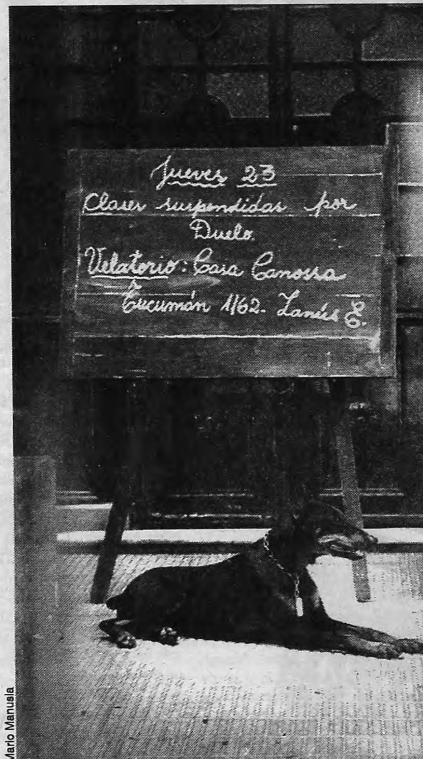 Jueves 23
Clases suspendidas por
Duelo.
Velatorio: Casa Canossa
Tucumán 1162. Lanús E.
Mario Manusia